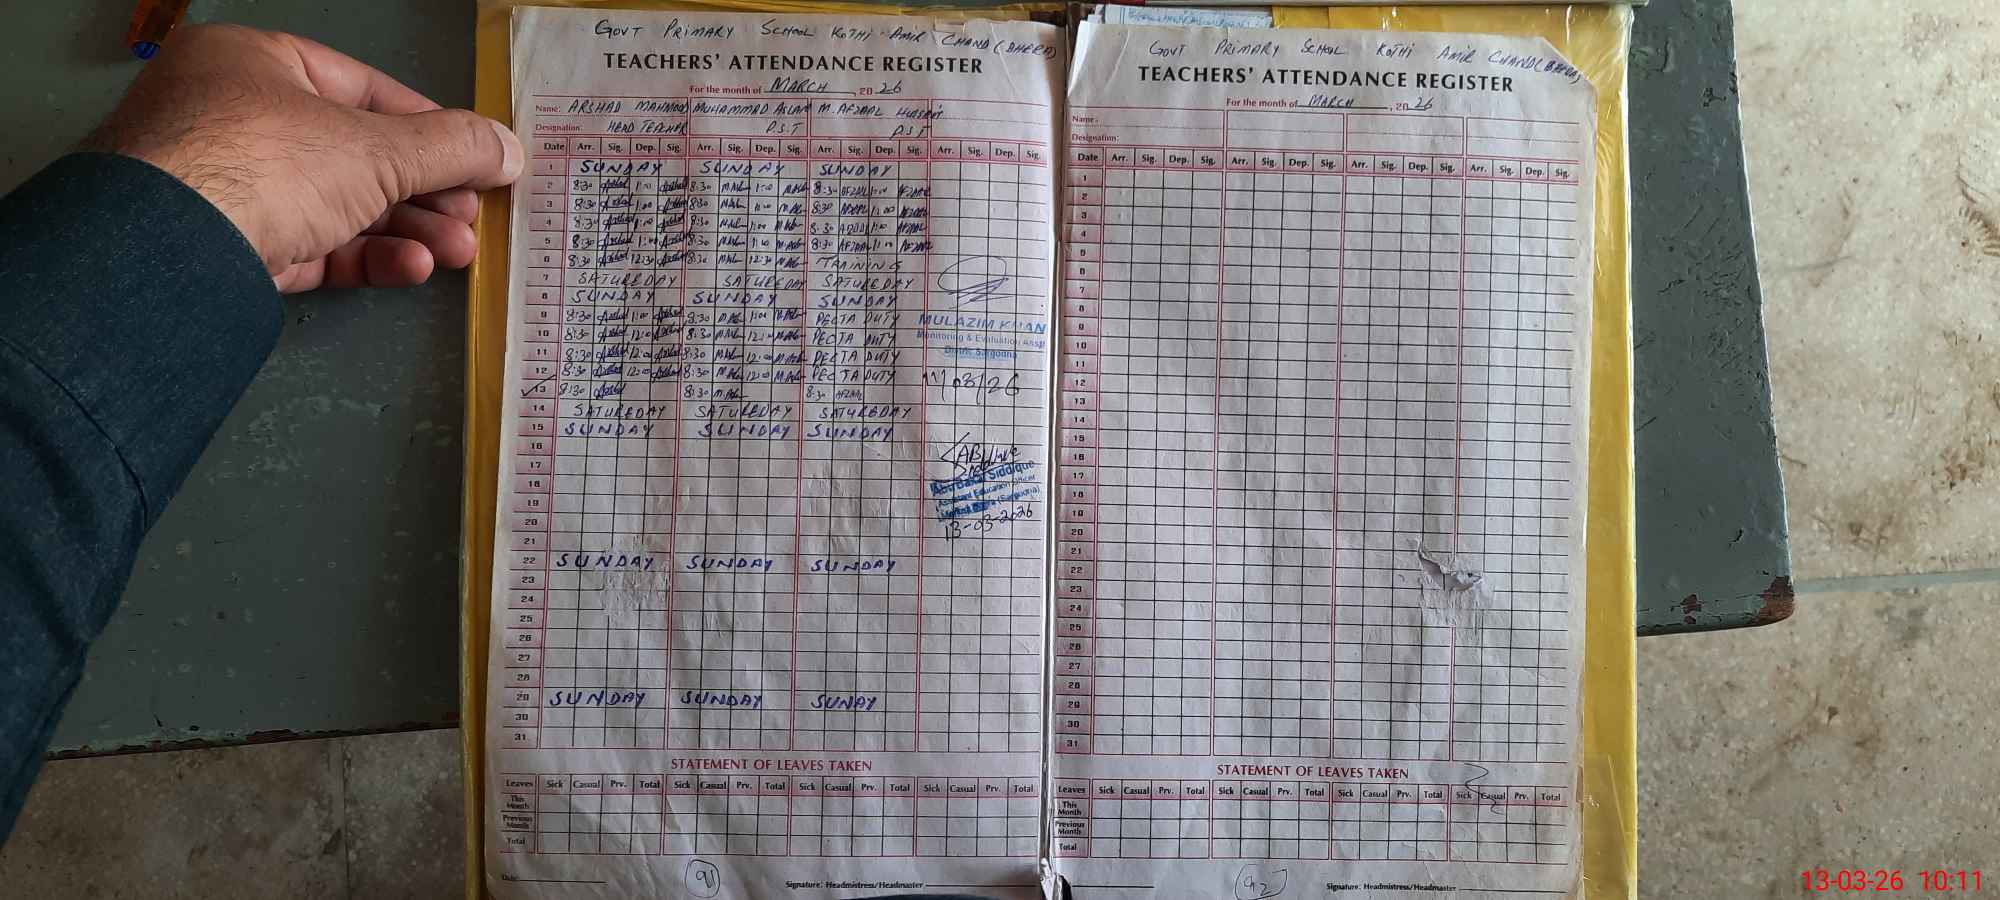 GOVT PRIMARY SCHOOL KOTHI AMIR CHAND (BHERA)
TEACHERS' ATTENDANCE REGISTER
For the month of MARCH, 2026
Name: ARSHAD MAHMOOD MUHAMMAD ASLAM M. AFZAAL HUSSAIN
Designation: HEAD TEACHER P.S.T P.S.T
Date Arr. Sig. Dep. Sig. Arr. Sig. Dep. Sig. Arr. Sig. Dep. Sig. Arr. Sig. Dep. Sig.
1 SUNDAY SUNDAY SUNDAY
2 8:30 Arshad 1:00 Arshad 8:30 M.Asl 1:00 M.Asl 8:30 AFZAAL 1:00 AFZAAL
3 8:30 Arshad 1:00 Arshad 8:30 M.Asl 1:00 M.Asl 8:30 AFZAAL 1:00 AFZAAL
4 8:30 Arshad 1:00 Arshad 8:30 M.Asl 1:00 M.Asl 8:30 AFZAAL 1:00 AFZAAL
5 8:30 Arshad 1:00 Arshad 8:30 M.Asl 1:00 M.Asl 8:30 AFZAAL 1:00 AFZAAL
6 8:30 Arshad 12:30 Arshad 8:30 M.Asl 12:30 M.Asl TRAINING
7 SATUREDAY SATUREDAY SATUREDAY
8 SUNDAY SUNDAY SUNDAY
9 8:30 Arshad 1:00 Arshad 8:30 M.Asl 1:00 M.Asl PECTA DUTY
10 8:30 Arshad 12:00 Arshad 8:30 M.Asl 12:00 M.Asl PECTA DUTY
11 8:30 Arshad 12:00 Arshad 8:30 M.Asl 12:00 M.Asl PECTA DUTY
12 8:30 Arshad 12:00 Arshad 8:30 M.Asl 12:00 M.Asl PECTA DUTY
13 8:30 Arshad 8:30 M.Asl 8:30 AFZAAL
14 SATUREDAY SATUREDAY SATUREDAY
15 SUNDAY SUNDAY SUNDAY
16
17
18
19
20
21
22 SUNDAY SUNDAY SUNDAY
23
24
25
26
27
28
29 SUNDAY SUNDAY SUNAY
30
31
MULAZIM KHAN
Monitoring & Evaluation Assistant
District Sargodha
11/03/26
Abu Bakar Siddique
Assistant Education Officer
(Sargodha)
13-03-2026
STATEMENT OF LEAVES TAKEN
Leaves Sick Casual Prv. Total Sick Casual Prv. Total Sick Casual Prv. Total Sick Casual Prv. Total
This Month
Previous Month
Total
Date:
91
Signature: Headmistress/Headmaster
GOVT PRIMARY SCHOOL KOTHI AMIR CHAND (BHERA)
TEACHERS' ATTENDANCE REGISTER
For the month of MARCH, 2026
Name:
Designation:
Date Arr. Sig. Dep. Sig. Arr. Sig. Dep. Sig. Arr. Sig. Dep. Sig. Arr. Sig. Dep. Sig.
1
2
3
4
5
6
7
8
9
10
11
12
13
14
15
16
17
18
19
20
21
22
23
24
25
26
27
28
29
30
31
STATEMENT OF LEAVES TAKEN
Leaves Sick Casual Prv. Total Sick Casual Prv. Total Sick Casual Prv. Total Sick Casual Prv. Total
This Month
Previous Month
Total
92
Signature: Headmistress/Headmaster
13-03-26 10:11